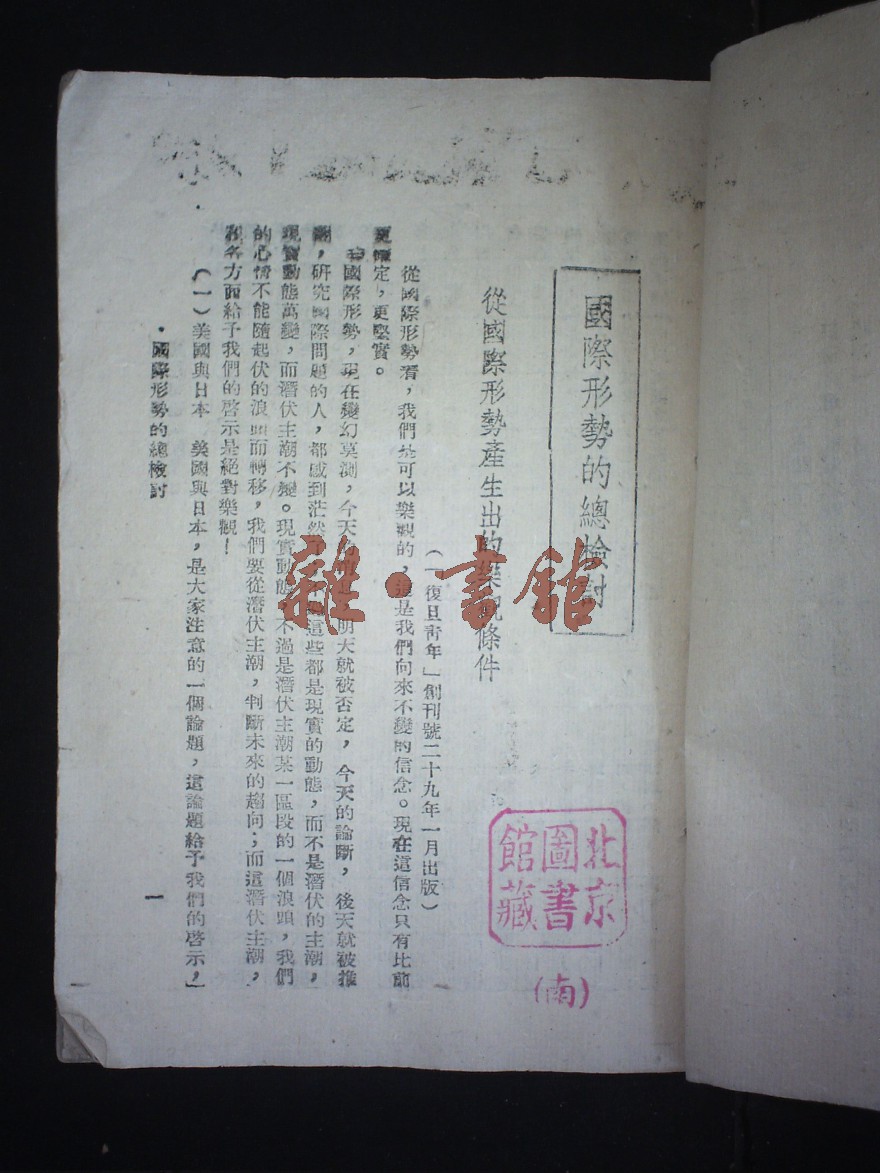 國際形勢的總檢討
從國際形勢產生出的樂觀條件
(「復旦青年」創刊號二十九年一月出版)
從國際形勢看,我們是可以樂觀的,這是我們向來不變的信念。現在這信念只有比前
更確定,更堅實。
國際形勢,現在變幻莫測,今天 明天就被否定,今天的論斷,後天就被推
翻,研究國際問題的人,都感到茫然 這些都是現實的動態,而不是潛伏的主潮,
現實動態萬變,而潛伏主潮不變。現實動態 不過是潛伏主潮某一區段的一個浪頭,我們
的心情不能隨起伏的浪頭而轉移,我們要從潛伏主潮,判斷未來的趨向;而這潛伏主潮,
各方面給予我們的啓示是絕對樂觀!
(一)美國與日本 美國與日本,是大家注意的一個論題,這論題給予我們的啓示,
・國際形勢的總檢討
一
北京
圖書
館藏
(南)
雜・書館